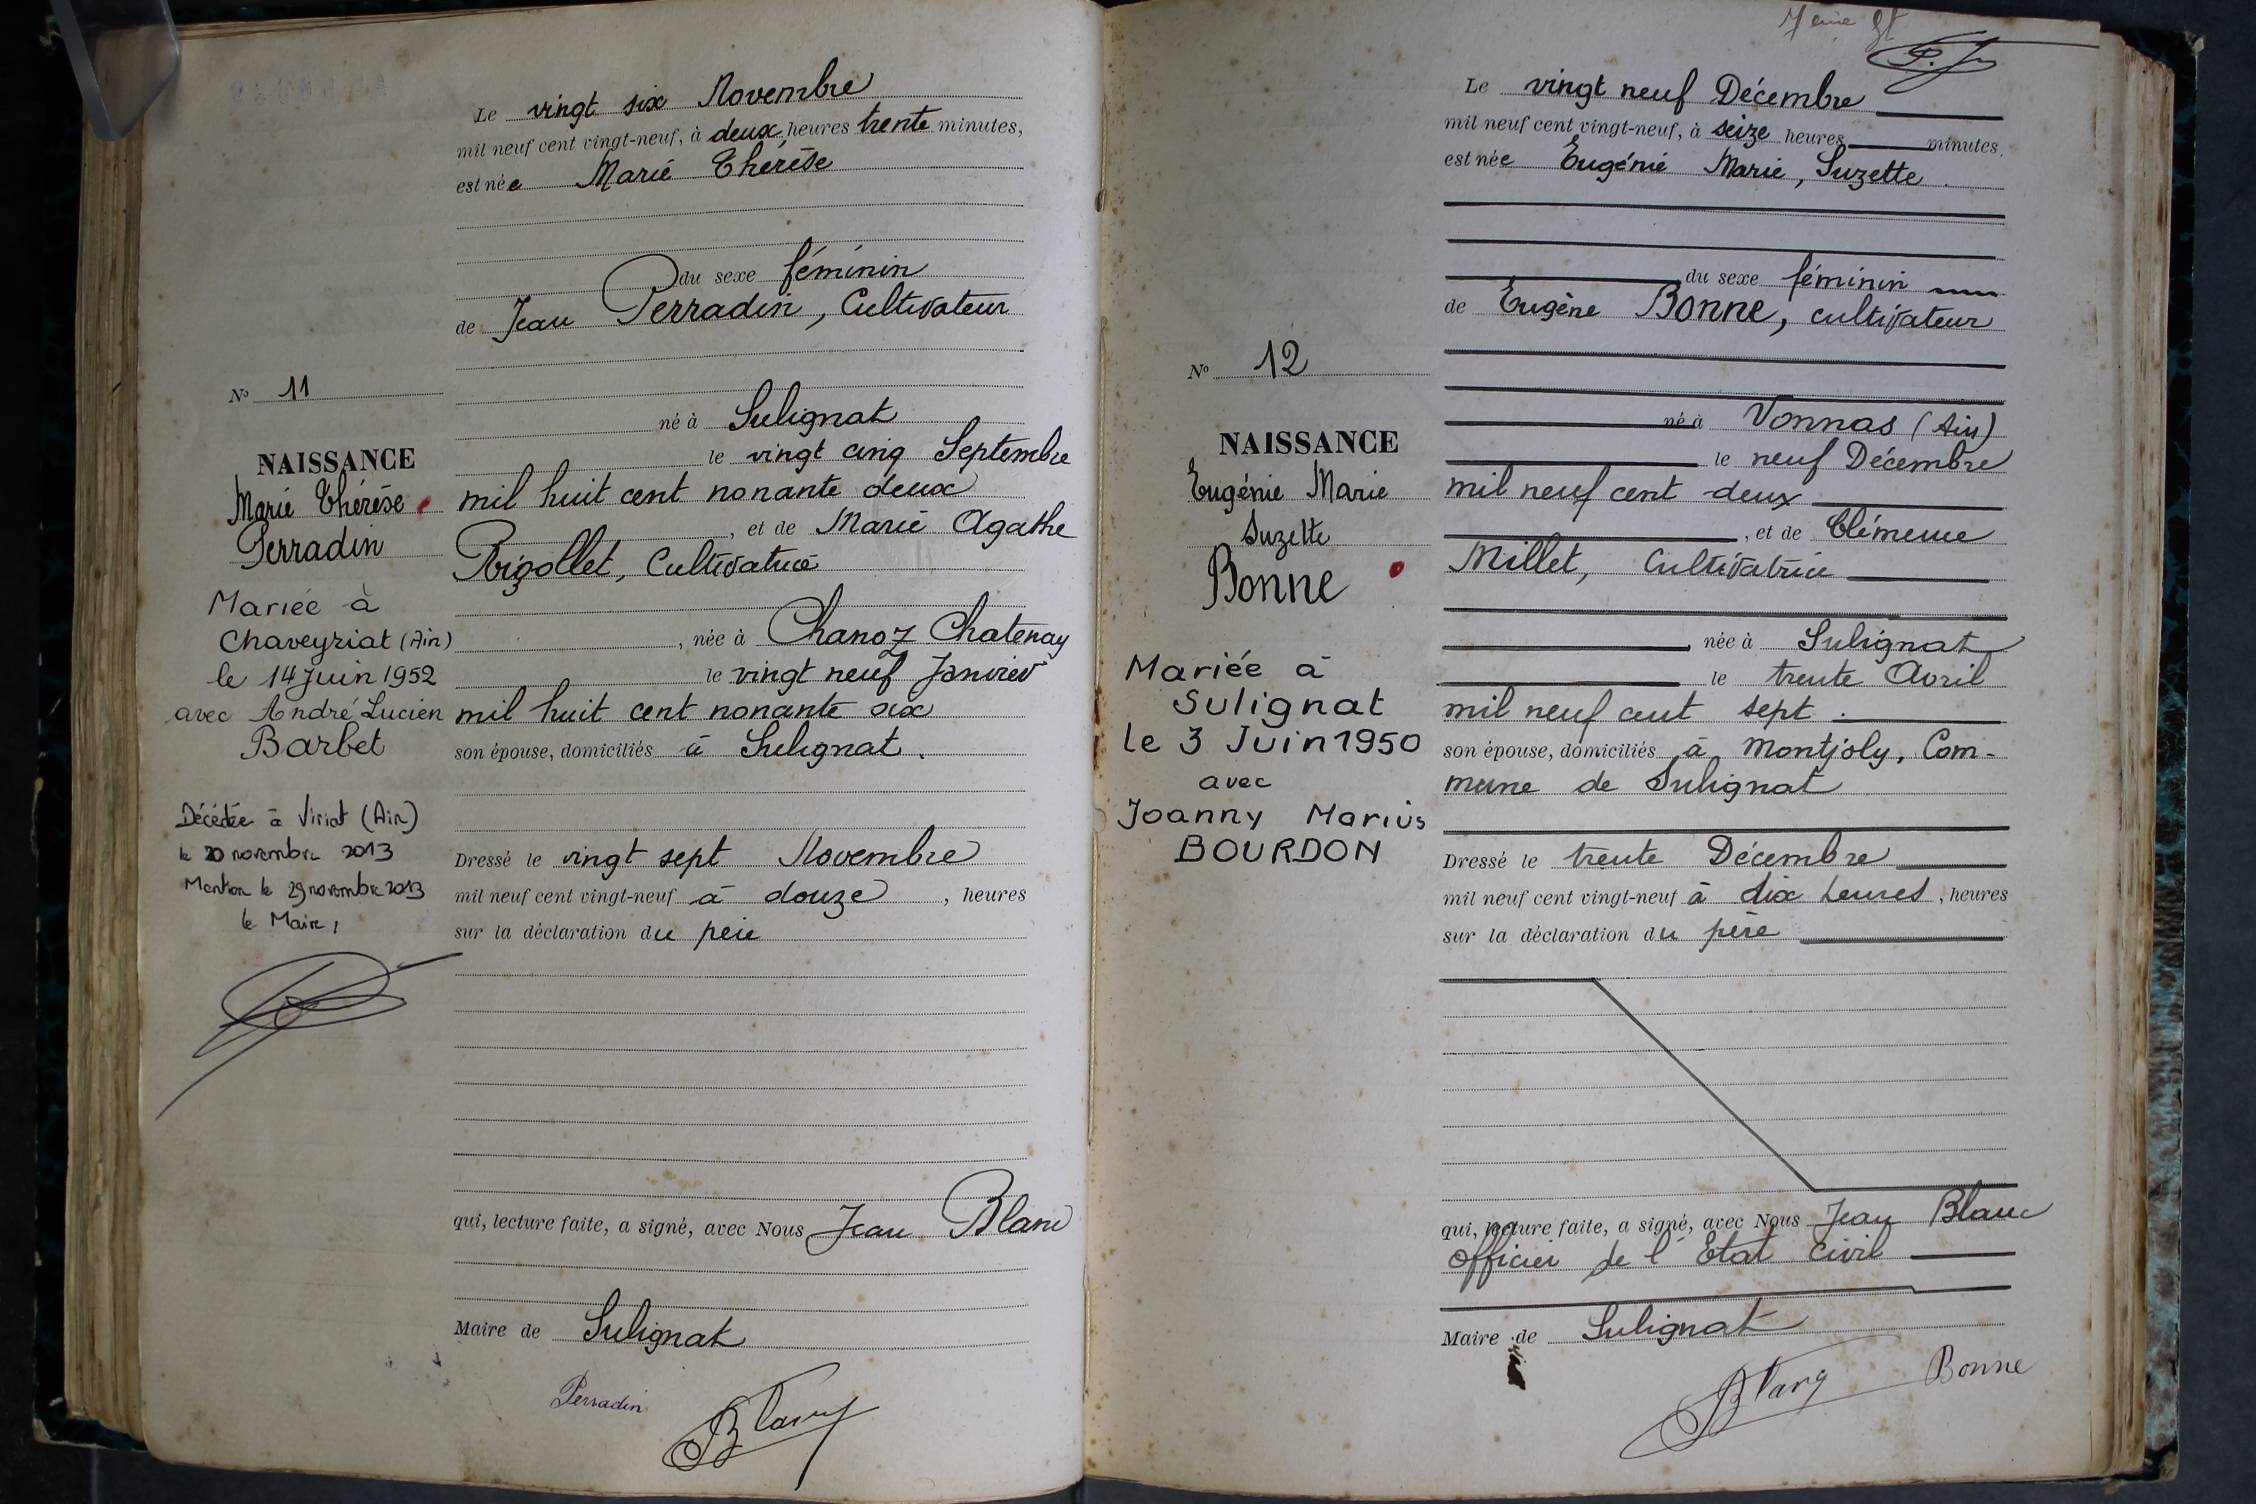 Le vingt six Novembre
mil neuf cent vingt-neuf, à deux heures trente minutes,
est née Marie Thérèse
du sexe féminin
de Jean Perradin, Cultivateur
né à Sulignat
le vingt cinq Septembre
mil huit cent nonante deux
, et de Marie Agathe
Rigollet, Cultivatrice
, née à Chanoz Chatenay
le vingt neuf Janvier
mil huit cent nonante six
son épouse, domiciliés à Sulignat.
Dressé le vingt sept Novembre
mil neuf cent vingt-neuf à douze, heures
sur la déclaration du père
qui, lecture faite, a signé, avec Nous Jean Blanc
Maire de Sulignat
Perradin Blanc
No 11
NAISSANCE
Marie Thérèse
Perradin
Mariée à
Chaveyriat (Ain)
le 14 Juin 1952
avec André Lucien
Barbet
Décédée à Viriat (Ain)
le 20 novembre 2013
Mention le 29 novembre 2013
le Maire,
7eme
Le vingt neuf Décembre
mil neuf cent vingt-neuf, à seize heures minutes.
est née Eugénie Marie, Suzette.
du sexe féminin
de Eugène Bonne, cultivateur
né à Vonnas (Ain)
le neuf Décembre
mil neuf cent deux
, et de Clémence
Millet, Cultivatrice
, née à Sulignat
le trente Avril
mil neuf cent sept.
son épouse, domiciliés à Montjoly, Com-
mune de Sulignat
Dressé le trente Décembre
mil neuf cent vingt-neuf à dix heures, heures
sur la déclaration du père
qui, lecture faite, a signé, avec Nous Jean Blanc
officier de l'Etat Civil
Maire de Sulignat
Blanc Bonne
No 12
NAISSANCE
Eugénie Marie
Suzette
Bonne
Mariée à
Sulignat
le 3 Juin 1950
avec
Joanny Marius
BOURDON